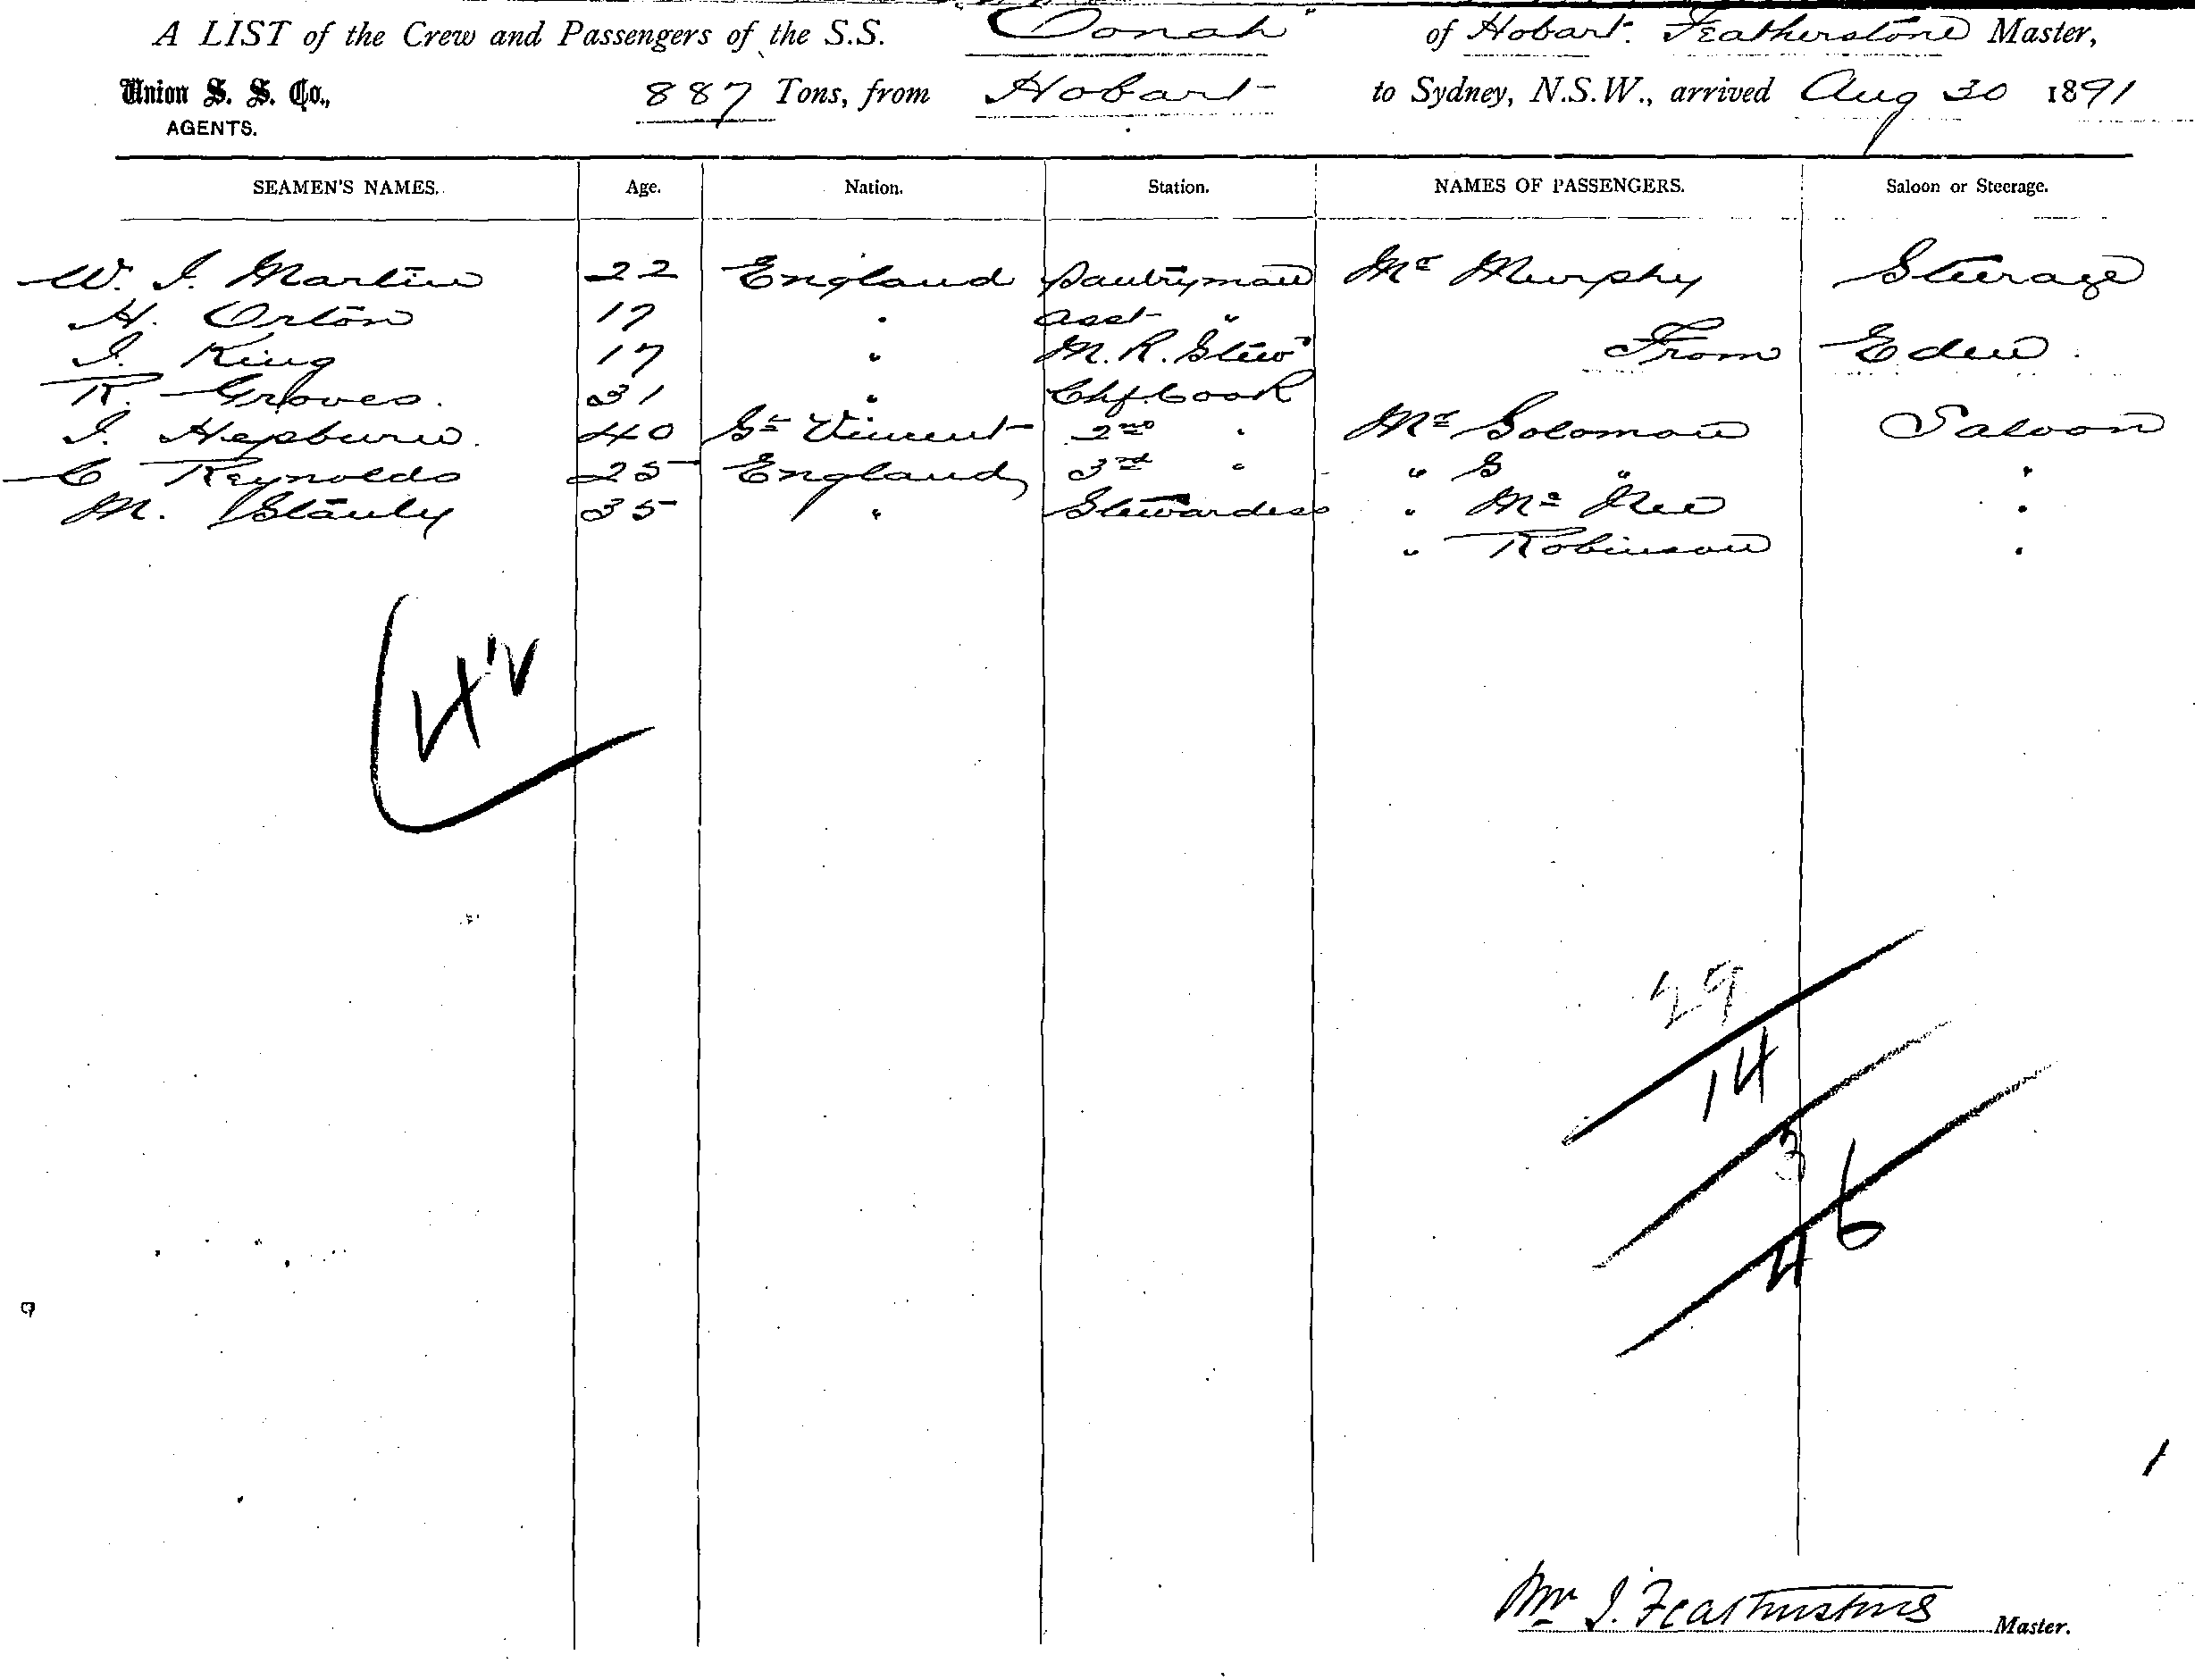 A LIST of the Crew and Passengers of the S.S. "Oonah" of Hobart. Featherstone Master,
Union S. S. Co., 887 Tons, from Hobart to Sydney, N.S.W., arrived Aug 30 1891
AGENTS.
SEAMEN'S NAMES. Age. Nation. Station. NAMES OF PASSENGERS. Saloon or Steerage.
W. J. Martin 22 England Pantryman Mr Murphy Steerage
H. Orton 17 " Asst "
J. King 17 " M. R. Stew From Eden
R. Groves. 31 " Chf Cook
J. Hepburn. 40 St Vincent 2nd " Mr Solomon Saloon
C Reynolds 25 England 3rd " " G " "
M. Stanly 35 " Stewardess " "
" Robinson "
29
14
3
46
Master.